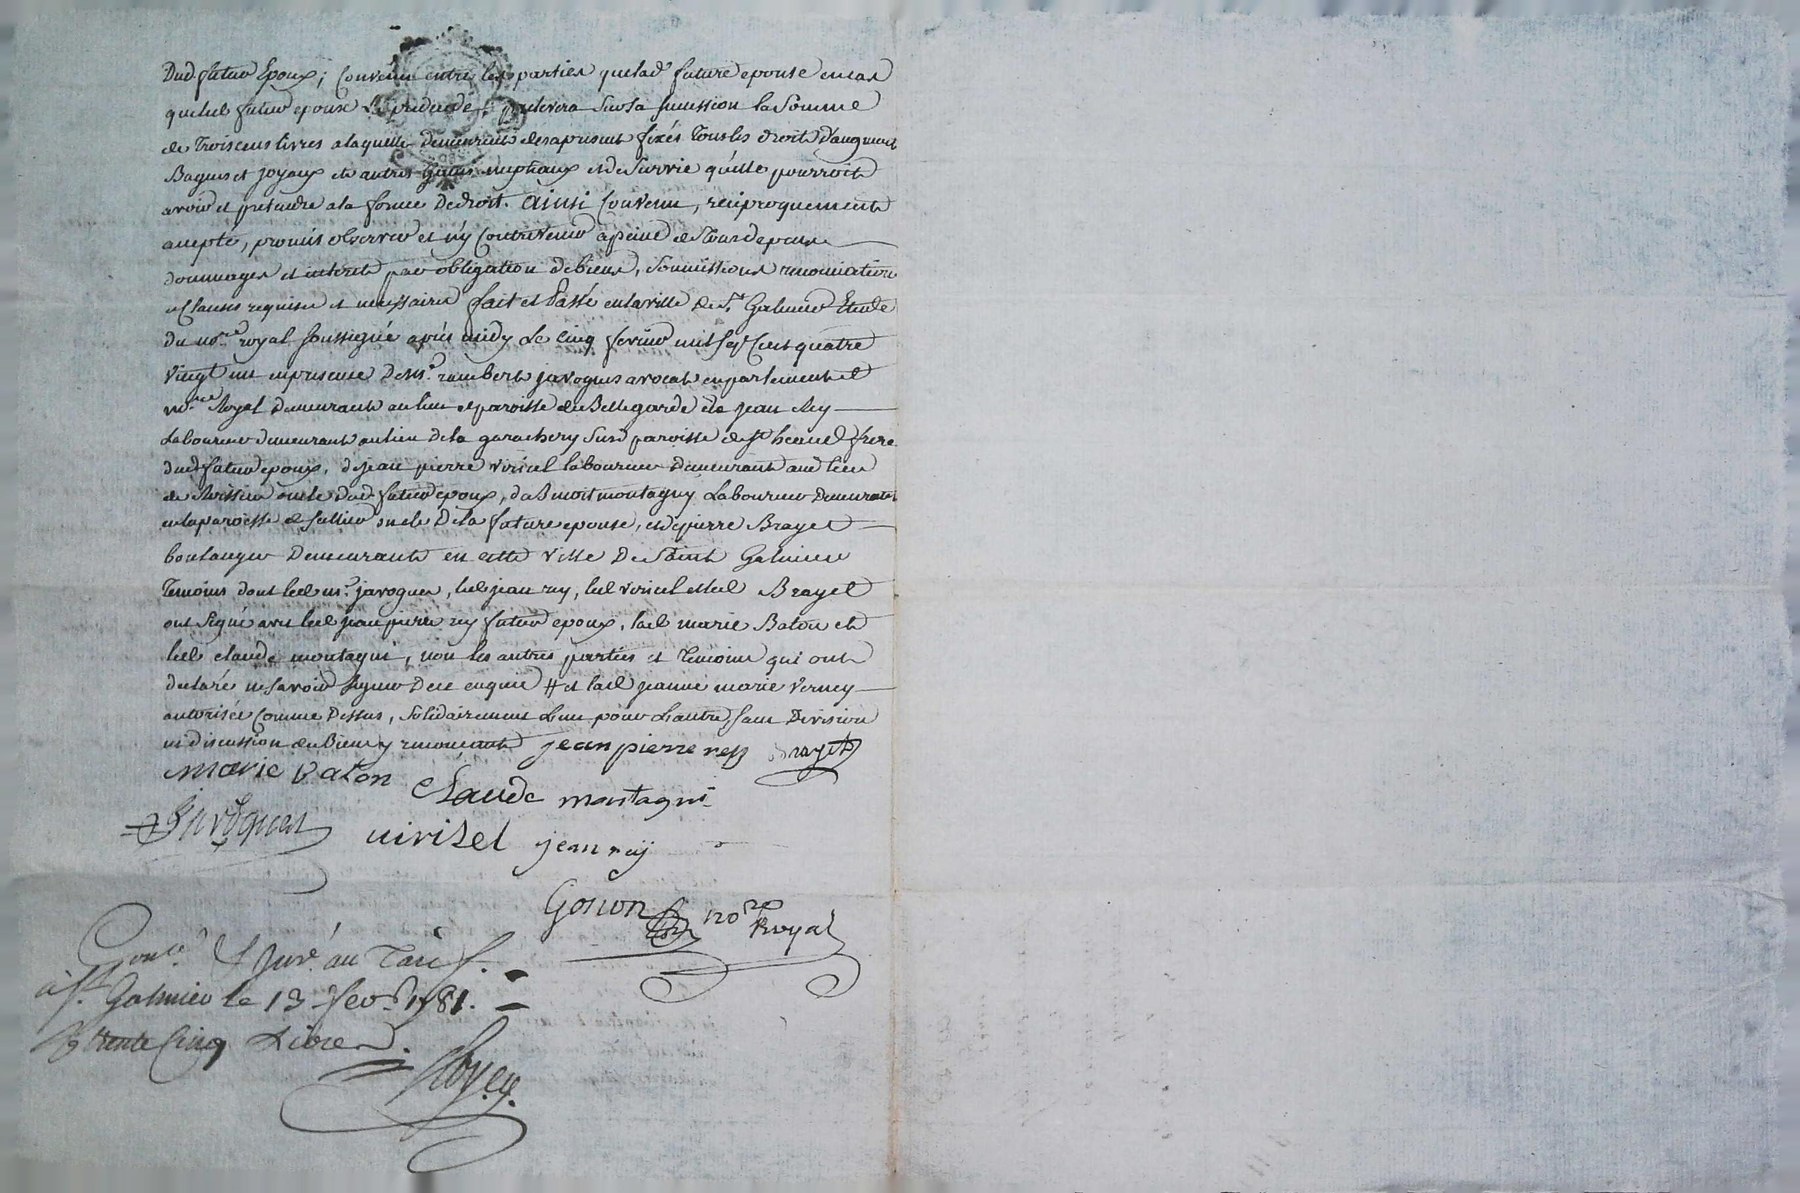 Dud. futur Epoux; Convenu entre les parties que lad.e future epouse en cas
que led. futur epoux la prédécéde, prelevera sur sa succession la Somme
de Trois cens livres a laquelle demeurent des a present fixés Tous les droits D'augment
Bagues et joyaux et autres gains nuptiaux et de Survie qu'elle pourroit
avoir et pretendre a la forme De droit. ainsi Convenu, reciproquement
accepté, promis observer et n'y Contrevenir a peine de Tous depens
dommages et interets par obligation de biens, Soumissions renonciations
et Clauses requises et necessaires fait et Passé en la ville De St. Galmier Etude
Du no.re royal Soussigné aprés midy Le Cinq fevrier mil sept Cent quatre
Vingt un en presence De m.e rambert javogues avocat en parlement et
no.re Royal demeurant au lieu et paroisse de Bellegarde de jean Rey
Laboureur demeurant au lieu de la garachery Susd. paroisse de St. heand frere
dud. futur epoux, de jean pierre viricel laboureur Demeurant aud. lieu
de oncle Dud. futur epoux, de Benoit montagny Laboureur Demeurant
en la paroisse de oncle De la future epouse, et de pierre Brayet
boulanger Demeurant en cette ville De Saint Galmier
Temoins dont led. m.e javogues, led. jean rey, led. viricel et led. Brayet
ont Signé avec led. jean pierre rey futur epoux, lad. marie Baton et
led. claude montagni, non les autres parties et Temoins qui ont
declaré ne Savoir Signer De ce enquis # et lad. jeanne marie Verney
autorisée Comme Dessus, Solidairement L'un pour L'autre, sans Division
ni discussion de Biens y renonçant jean pierre rey Brayet
marie baton claude montagni
Javogues virisel jean rey
Gonon no.re Royal
Con.lé & Jnr.é au Tarif.
à St. Galmier le 13 fevr. 1781.
R trente Cinq Livres.